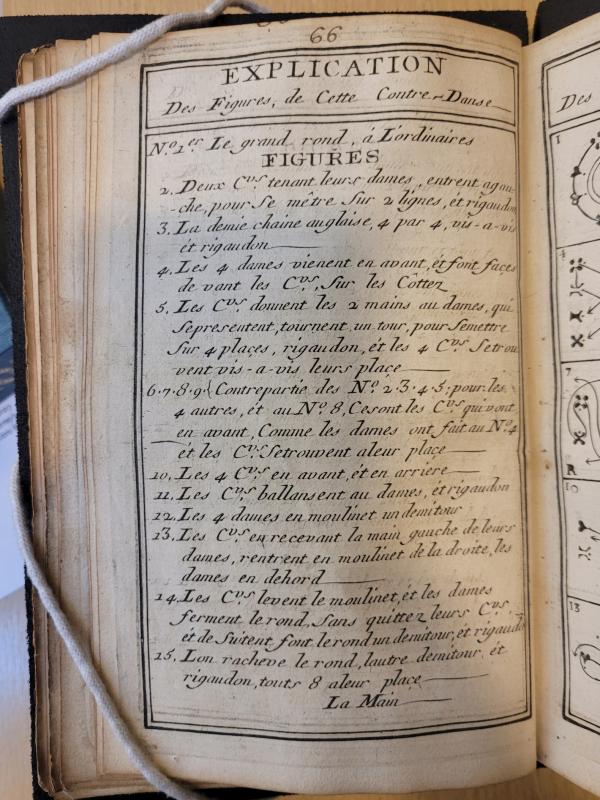 66
EXPLICATION
Des Figures, de Cette Contre-Danse
N.º 1.er Le grand rond, á L'ordinaires
FIGURES
2. Deux C.vs tenant leurs dames, entrent agau-
-che, pour se mêtre sur 2 lignes, ét rigaudon
3. La demie chaine anglaise, 4 par 4, vis-a-vis
ét rigaudon
4. Les 4 dames vienent en avant, ét font faces
de vant les C.vs, sur les Côttez
5. Les C.vs donnent les 2 mains au dames, qui
sepresentent, tournent un tour, pour semettre
sur 4 places, rigaudon, ét les 4 C.vs setrou
vent vis-a-vis leurs place
6.7.8.9. Contrepartie des N.º 2.3.4.5. pour les
4 autres, ét au N.º 8, Cesont les C.vs qui vont
en avant, Comme les dames ont fait au N.º 4
ét les C.vs setrouvent aleur place
10. Les 4 C.vs en avant, ét en arriere
11. Les C.vs ballansent au dames, ét rigaudon
12. Les 4 dames en moulinet un demitour
13. Les C.vs en recevant la main gauche de leurs
dames, rentrent en moulinet de la droite, les
dames en dehord
14. Les C.vs levent le moulinet, ét les dames
ferment le rond, sans quittez leurs C.vs,
ét de suitent font le rond un demitour, ét rigaudo
15. Lon racheve le rond, lautre demitour, ét
rigaudon, touts 8 aleur place
La Main
Des
1
4
7
10
13